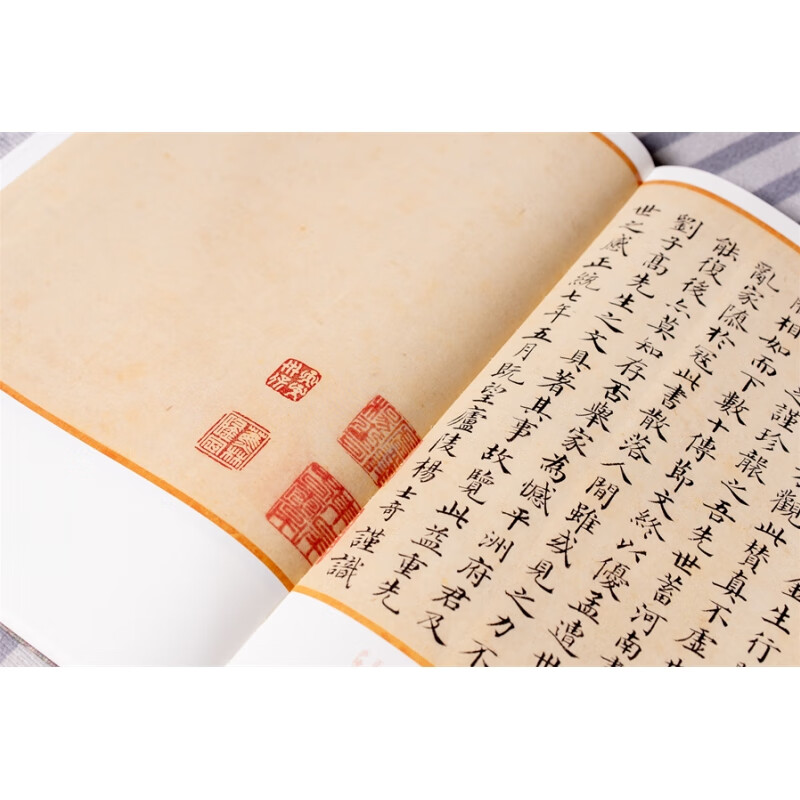 金生行
觀此贊真不虛
之謹珍襲之吾先世蓄河南
相如而下數十傳節文終以優孟遭世
亂家隨於寇此書散落人間雖或見之力不
能復後亦莫知存否舉家為憾平洲府君及
劉子高先生之文具著其事故覽此益重先
世之感正統七年五月既望廬陵楊士奇謹識